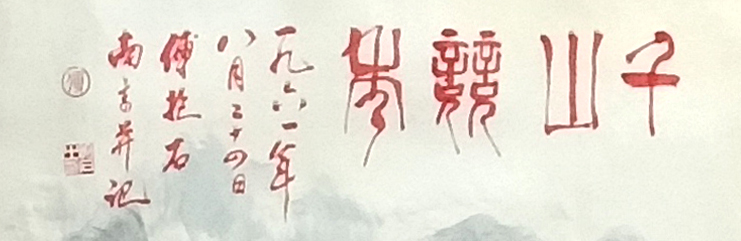 千山競秀
一九六一年
八月二十四日
傅抱石
南京并记